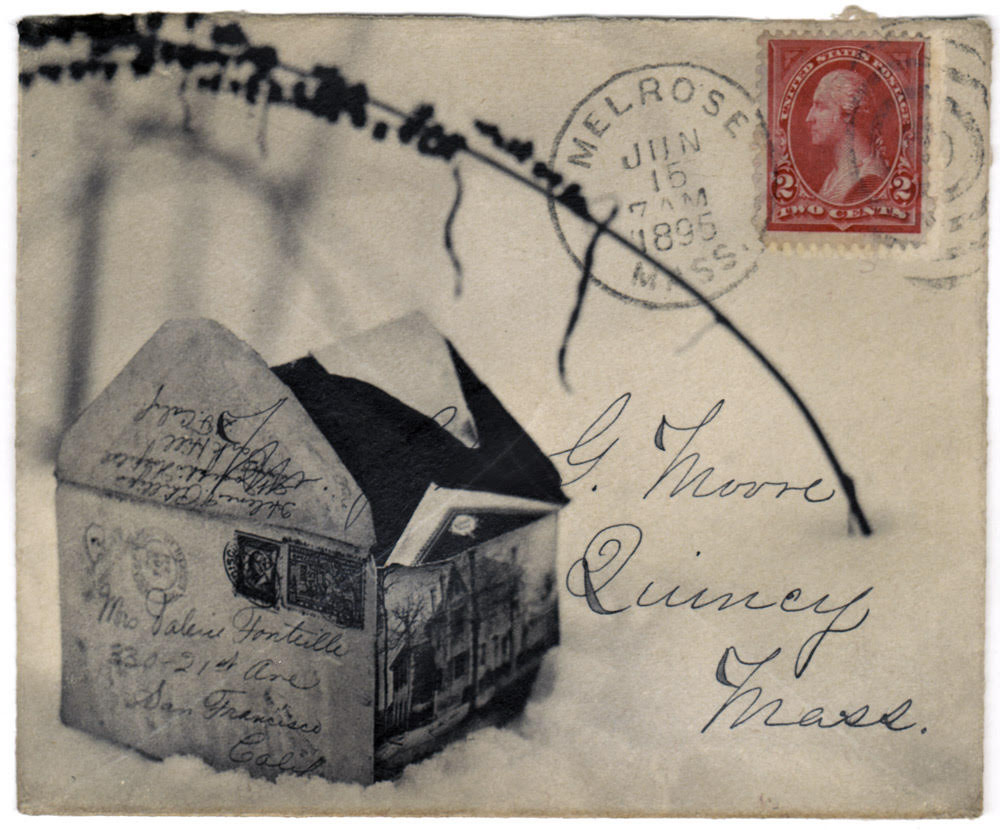 MELROSE
JUN
15
7 AM
1895
MASS.
UNITED STATES POSTAGE
2 2
TWO CENTS
G. Moore
Quincy
Mass.
Park Hill
S.F. Calif
Mrs Valerie Fonteille
330-21st Ave
San Francisco
Calif